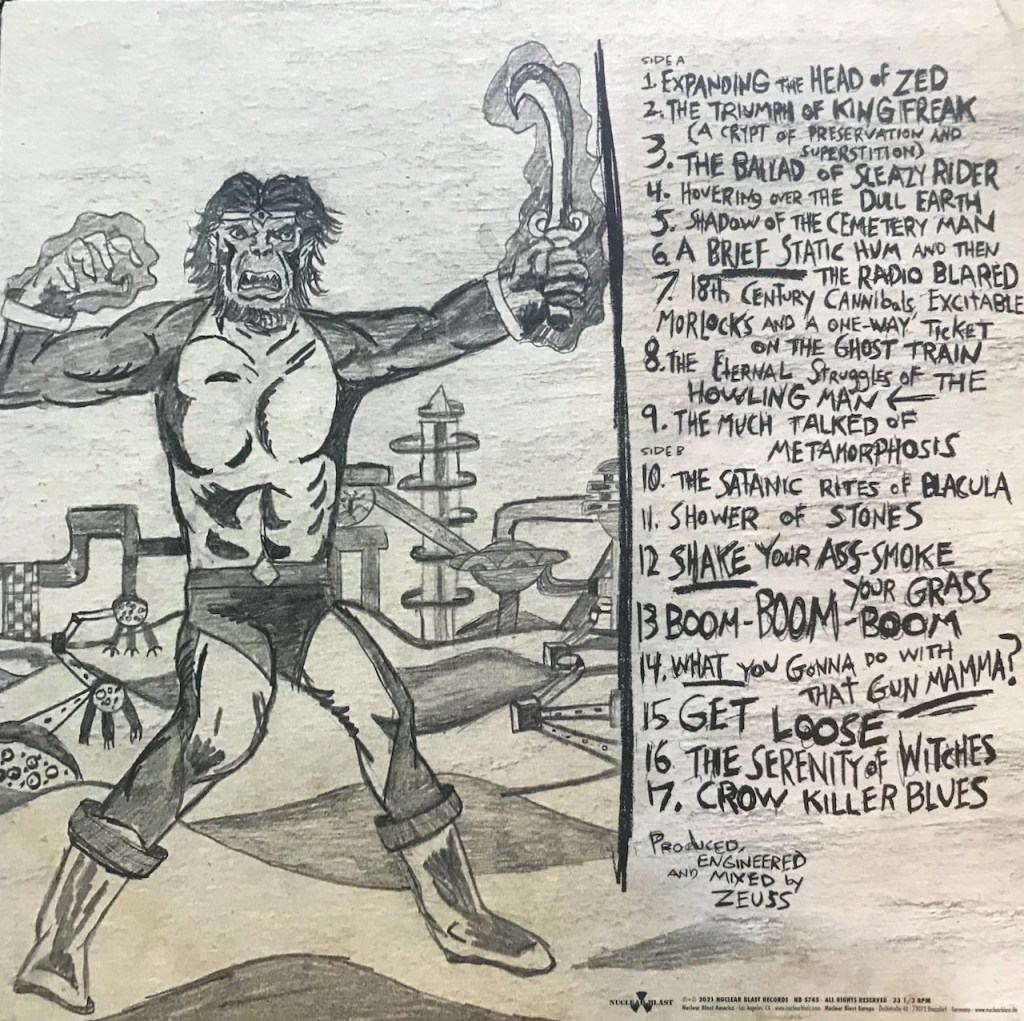 SIDE A
1. EXPANDING THE HEAD OF ZED
2. THE TRIUMPH OF KING FREAK
(A CRYPT OF PRESERVATION AND
SUPERSTITION)
3. THE BALLAD OF SLEAZY RIDER
4. HOVERING OVER THE DULL EARTH
5. SHADOW OF THE CEMETERY MAN
6. A BRIEF STATIC HUM AND THEN
THE RADIO BLARED
7. 18th CENTURY CANNIBALS, EXCITABLE
MORLOCKS AND A ONE-WAY TICKET
ON THE GHOST TRAIN
8. THE ETERNAL STRUGGLES OF THE
HOWLING MAN ←
9. THE MUCH TALKED OF
METAMORPHOSIS
SIDE B
10. THE SATANIC RITES OF BLACULA
11. SHOWER OF STONES
12 SHAKE YOUR ASS-SMOKE
YOUR GRASS
13 BOOM-BOOM-BOOM
14. WHAT YOU GONNA DO WITH
THAT GUN MAMMA?
15 GET LOOSE
16. THE SERENITY OF WITCHES
17. CROW KILLER BLUES
PRODUCED,
ENGINEERED
AND MIXED by
ZEUSS
NUCLEAR BLAST
℗+© 2021 NUCLEAR BLAST RECORDS · NB 5745 · ALL RIGHTS RESERVED · 33 1/3 RPM
Nuclear Blast America · Los Angeles, CA · www.nuclearblast.com · Nuclear Blast Europe · Germany · www.nuclearblast.de